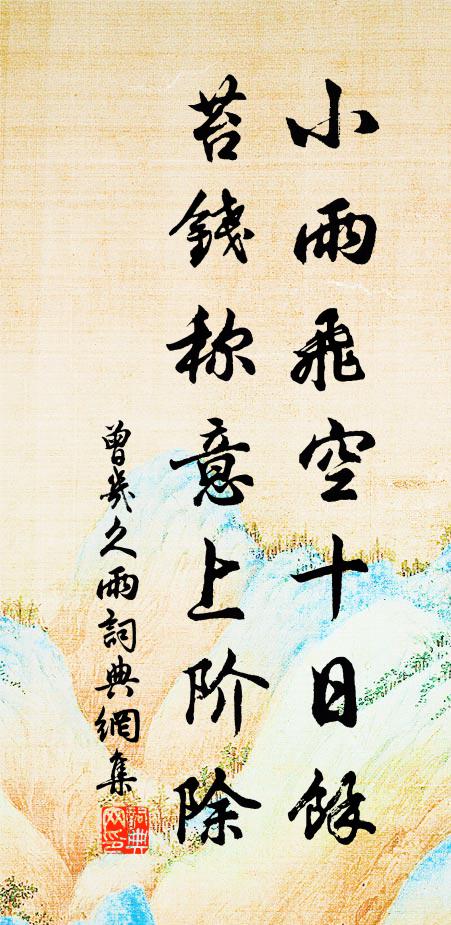 小雨飛空十日餘
苔錢称意上阶除
曾幾久雨詞典網集